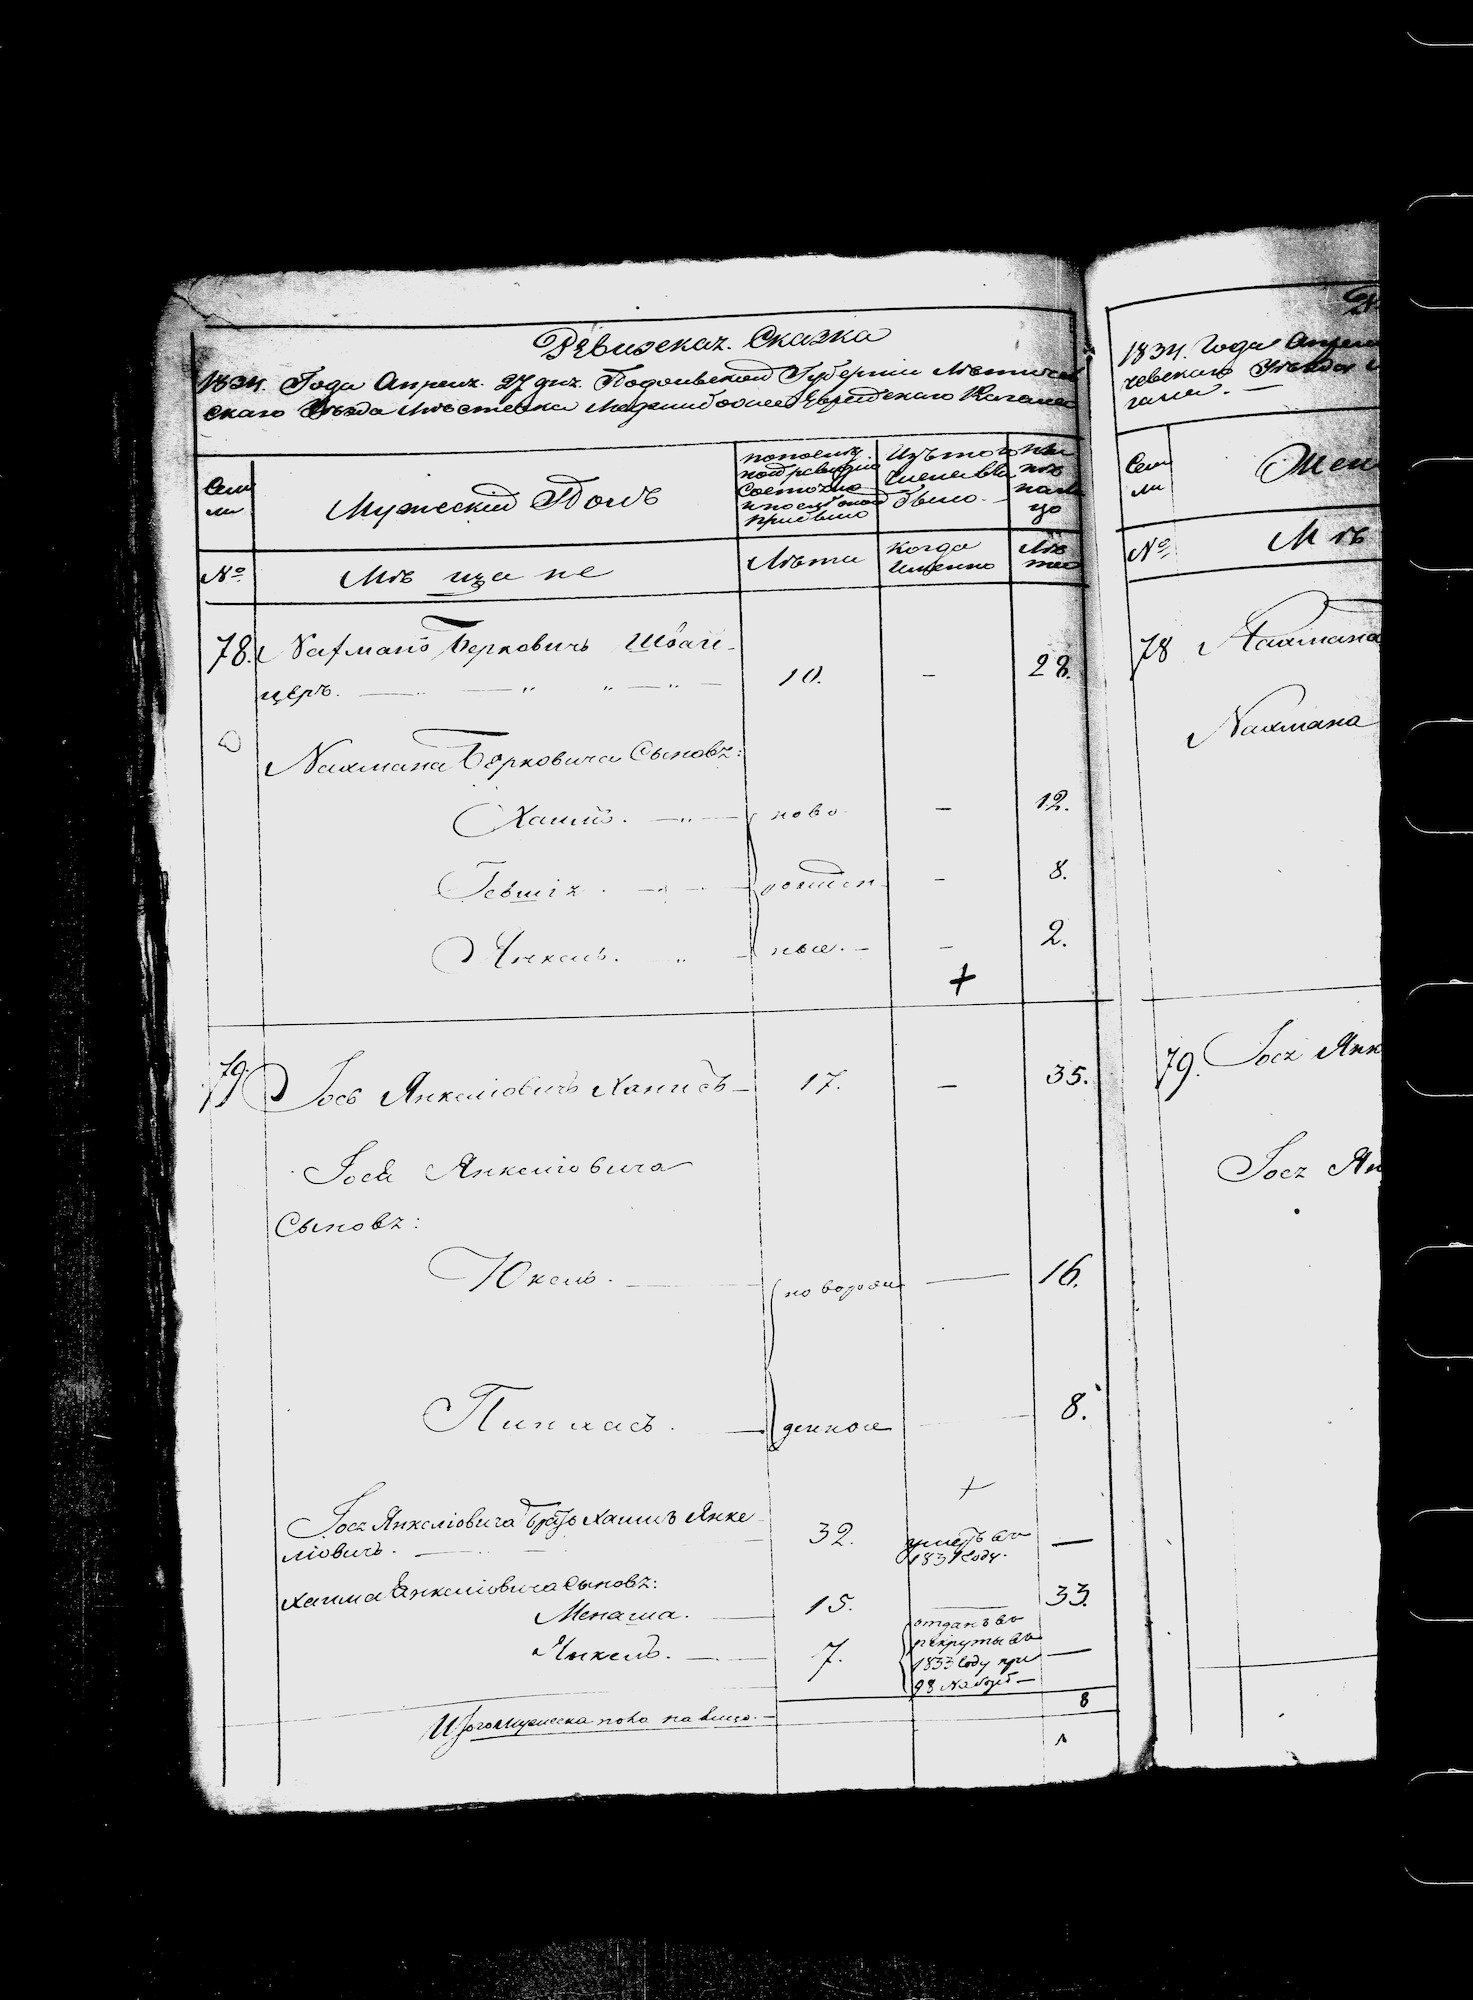 Ревизская. Сказка
1834. Года Апреля. 27 дня. Подольской Губернии Летичев
скаго Уезда Местечка Меджибожа Еврейскаго Кагала
Семьи
Мужеский Полъ
по последн.
под ревизию
Состояло
и после оной
прибыло
Изъ того
числа выбыло
ны
не
на ли
цо
№
Мѣщане
Лѣта
Когда
именно
Лѣ
та
78. Нахманъ Берковичъ Швай-
церъ. 10. — 28.
Нахмана Берковича Сыновя:
Хаимъ. ново — 12.
Гевшія. рожден — 8.
Янкель. ные. — 2.
+
79. Іось Янкеліовичъ Ханисъ — 17. — 35.
Іося Янкеліовича
Сыновя:
Юкель. новорож — 16.
Пинхасъ. денные 8.
+
Іося Янкеліовича братъ Хаимъ Янке
ліовичъ. 32. умеръ въ
1831 году. —
Хаима Янкеліовича Сыновя:
Менаша. 15. — 33.
Янкель. 7. отданъ въ
рекруты въ
1833 году при
98 наборѣ —
Итого мужеска пола на лицо. — 8
1834. Года Апреля
чевскаго Уезда
гала.
Семьи
Жен
№
Мѣ
78 Нахмана
Нахмана
79. Іося Янк
Іося Ян